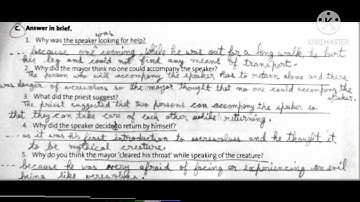 C. Answer in brief.
was
1. Why was the speaker looking for help?
because one evening, while he was out for a long walk, he hurt
his leg and could not find any means of transport.
2. Why did the mayor think no one could accompany the speaker?
The person who will accompany the speaker has to return alone and there
was danger of werewolves so the mayor thought that no one could accompany the
speaker.
3. What did the priest suggest?
The priest suggested that two persons can accompany the speaker so
that they can take care of each other while returning.
4. Why did the speaker decide to return by himself?
as it was his first introduction to werewolves and he thought it
to be mythical creature.
5. Why do you think the mayor 'cleared his throat' while speaking of the creature?
because he was very afraid of facing or experiencing an evil
being like werewolves.
KINEMASTER